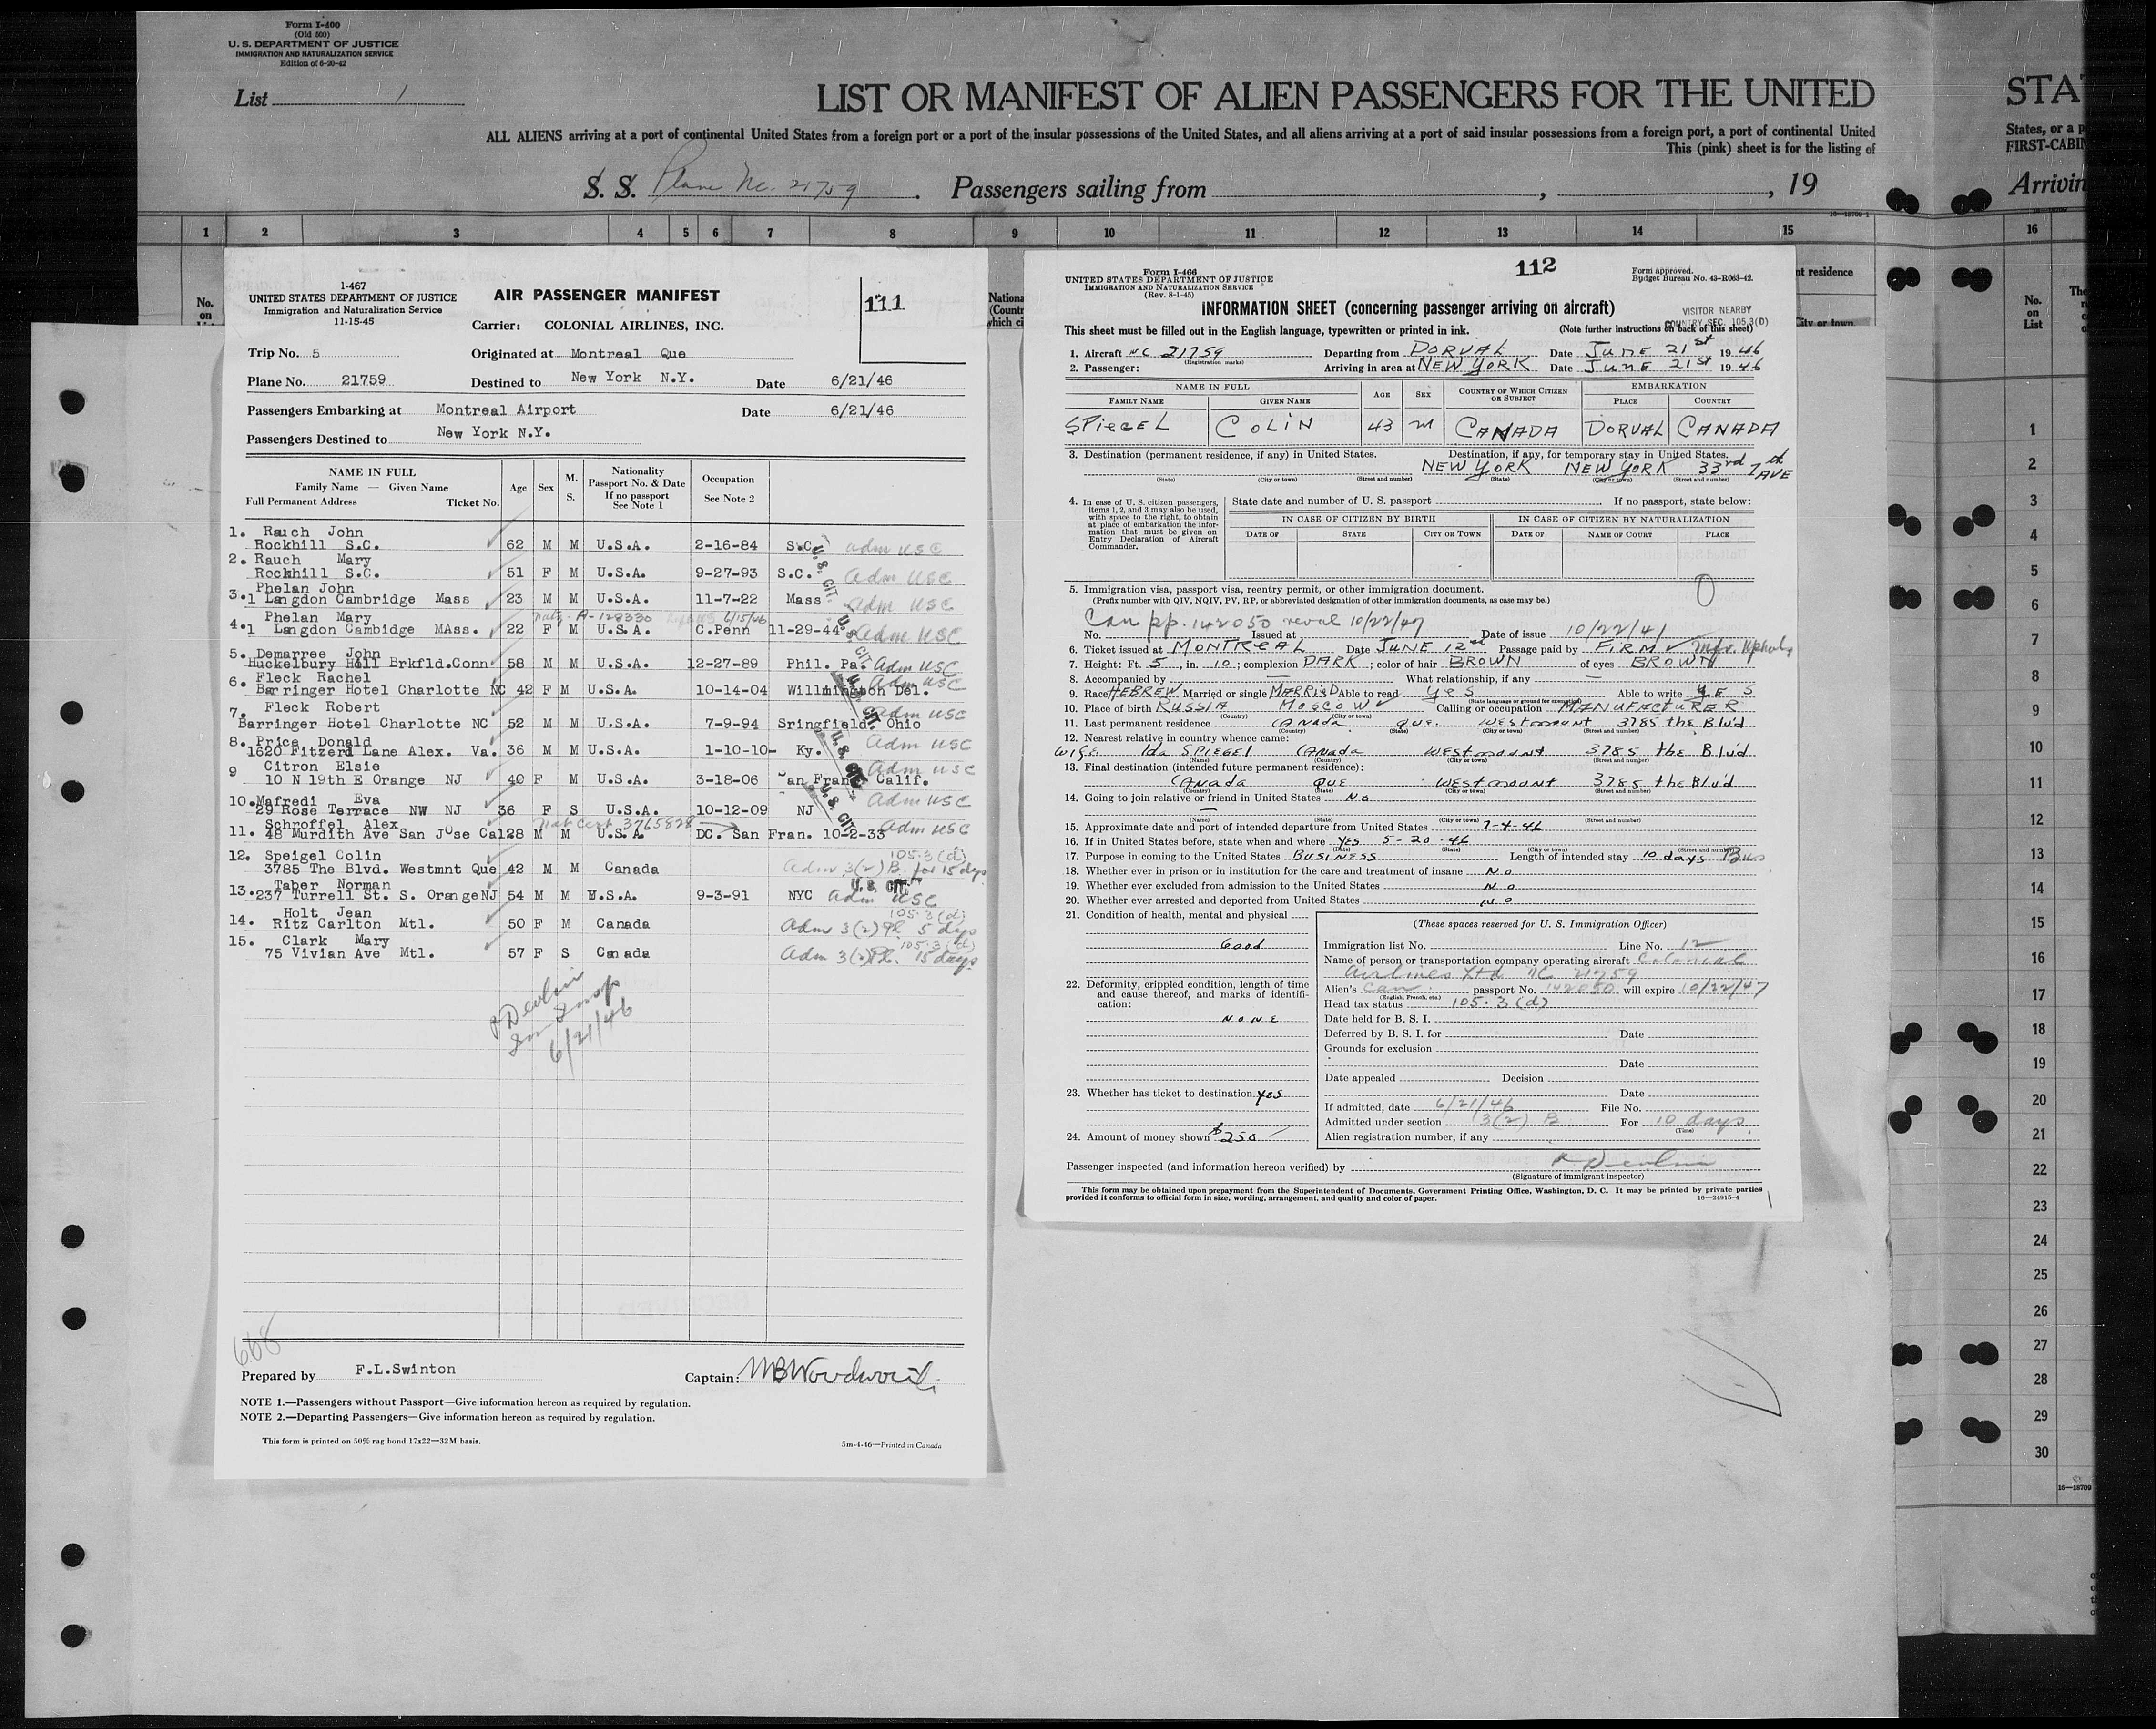 Form I-400
(Old 500)
U. S. DEPARTMENT OF JUSTICE
IMMIGRATION AND NATURALIZATION SERVICE
Edition of 6-20-42
List 1
LIST OR MANIFEST OF ALIEN PASSENGERS FOR THE UNITED
ALL ALIENS arriving at a port of continental United States from a foreign port or a port of the insular possessions of the United States, and all aliens arriving at a port of said insular possessions from a foreign port, a port of continental United
This (pink) sheet is for the listing of
S. S. Plane No. 21759 Passengers sailing from , , 19
1 2 3 4 5 6 7 8 9 10 11 12 13 14 15
STA
States, or a p
FIRST-CABIN
Arrivin
16
No.
on
List
1-467
UNITED STATES DEPARTMENT OF JUSTICE
Immigration and Naturalisation Service
11-15-45
AIR PASSENGER MANIFEST
111
Carrier: COLONIAL AIRLINES, INC.
Trip No. 5 Originated at Montreal Que
Plane No. 21759 Destined to New York N.Y. Date 6/21/46
Passengers Embarking at Montreal Airport Date 6/21/46
Passengers Destined to New York N.Y.
NAME IN FULL
Family Name — Given Name
Full Permanent Address Ticket No.
Age
Sex
M.
S.
Nationality
Passport No. & Date
If no passport
See Note 1
Occupation
See Note 2
1. Rauch John
Rockhill S.C. 62 M M U.S.A. 2-16-84 S.C. adm USC
2. Rauch Mary
Rockhill S.C. 51 F M U.S.A. 9-27-93 S.C. Adm USC
Phelan John
3.1 Langdon Cambridge Mass 23 M M U.S.A. 11-7-22 Mass Adm USC
Phelan Mary A-128330 6/15/46
4.1 Langdon Cambidge MAss. 22 F M U.S.A. C.Penn 11-29-44 adm USC
5. Demarree John
Huckelbury Hill Brkfld.Conn 58 M M U.S.A. 12-27-89 Phil. Pa. Adm USC
6. Fleck Rachel Adm USC
Barringer Hotel Charlotte NC 42 F M U.S.A. 10-14-04 Willmington Del.
7. Fleck Robert adm USC
Barringer Hotel Charlotte NC 52 M M U.S.A. 7-9-94 Sringfield Ohio
8. Price Donald Adm USC
1620 Fitzerd Lane Alex. Va. 36 M M U.S.A. 1-10-10- Ky.
9 Citron Elsie Adm USC
10 N 19th E Orange NJ 40 F M U.S.A. 3-18-06 San Fran. Calif.
10. Mafredi Eva Adm USC
29 Rose Terrace NW NJ 36 F S U.S.A. 10-12-09 NJ
Schroffel Alex Nat Cert 3765828
11. 48 Murdith Ave San Juse Cal 28 M M U.S.A. DC. San Fran. 10-2-33 Adm USC
12. Speigel Colin 105.3(d)
3785 The Blvd. Westmnt Que 42 M M Canada Adm 3(2) B. for 15 days
Taber Norman U. S. CIT.
13. 237 Turrell St. S. Orange NJ 54 M M U.S.A. 9-3-91 NYC adm USC
Holt Jean 105.3(d)
14. Ritz Carlton Mtl. 50 F M Canada Adm 3(2) Pl. 5 days
15. Clark Mary 105.3(d)
75 Vivian Ave Mtl. 57 F S Canada Adm 3(2) Pl. 15 days
P Devlin
Imm Insp
6/21/46
668
Prepared by F.L.Swinton Captain: MBWoodworth
NOTE 1.—Passengers without Passport—Give information hereon as required by regulation.
NOTE 2.—Departing Passengers—Give information hereon as required by regulation.
This form is printed on 50% rag bond 17x22—32M basis. 5m-4-46—Printed in Canada
Form I-466
UNITED STATES DEPARTMENT OF JUSTICE
IMMIGRATION AND NATURALIZATION SERVICE
(Rev. 8-1-45)
112
Form approved.
Budget Bureau No. 43-R063-42.
INFORMATION SHEET (concerning passenger arriving on aircraft)
VISITOR NEARBY
COUNTRY SEC. 105.3(D)
This sheet must be filled out in the English language, typewritten or printed in ink. (Note further instructions on back of this sheet)
1. Aircraft NC 21759 (Registration marks) Departing from DORVAL Date JUNE 21st 1946
2. Passenger: Arriving in area at NEW YORK Date JUNE 21st 1946
NAME IN FULL
FAMILY NAME GIVEN NAME
AGE SEX COUNTRY OF WHICH CITIZEN OR SUBJECT
EMBARKATION
PLACE COUNTRY
SPIEGEL COLIN 43 M CANADA DORVAL CANADA
3. Destination (permanent residence, if any) in United States. Destination, if any, for temporary stay in United States.
NEW YORK NEW YORK 33rd 7th AVE
(State) (City or town) (Street and number) (State) (City or town) (Street and number)
4. In case of U. S. citizen passengers, items 1, 2, and 3 may also be used, with space to the right, to obtain at place of embarkation the information that must be given on Entry Declaration of Aircraft Commander.
State date and number of U. S. passport If no passport, state below:
IN CASE OF CITIZEN BY BIRTH IN CASE OF CITIZEN BY NATURALIZATION
DATE OF STATE CITY OR TOWN DATE OF NAME OF COURT PLACE
5. Immigration visa, passport visa, reentry permit, or other immigration document.
(Prefix number with QIV, NQIV, PV, RP, or abbreviated designation of other immigration documents, as case may be.)
Can pp. 142050 10/22/47
No. Issued at Date of issue 10/22/41
6. Ticket issued at MONTREAL Date JUNE 12 Passage paid by FIRM
7. Height: Ft. 5, in. 10; complexion DARK; color of hair BROWN of eyes BROWN
8. Accompanied by — What relationship, if any —
9. Race HEBREW Married or single MARRIED Able to read yes Able to write YES
10. Place of birth RUSSIA MOSCOW Calling or occupation MANUFACTURER
(Country) (City or town)
11. Last permanent residence CANADA QUE. WESTMOUNT 3785 the Blvd
(Country) (State) (City or town) (Street and number)
12. Nearest relative in country whence came:
WIFE Ida SPIEGEL CANADA WESTMOUNT 3785 the Blvd
(Name) (Country) (City or town) (Street and number)
13. Final destination (intended future permanent residence):
CANADA QUE WESTMOUNT 3785 the Blvd
(Country) (State) (City or town) (Street and number)
14. Going to join relative or friend in United States No
(Name) (State) (City or town) (Street and number)
15. Approximate date and port of intended departure from United States 7-4-46
16. If in United States before, state when and where YES 5-20-46
(Date) (State) (City or town) (Street and number)
17. Purpose in coming to the United States BUSINESS Length of intended stay 10 days Bus
18. Whether ever in prison or in institution for the care and treatment of insane No
19. Whether ever excluded from admission to the United States No
20. Whether ever arrested and deported from United States No
21. Condition of health, mental and physical
Good
22. Deformity, crippled condition, length of time and cause thereof, and marks of identification:
NONE
23. Whether has ticket to destination yes
24. Amount of money shown $250
(These spaces reserved for U. S. Immigration Officer)
Immigration list No. Line No. 12
Name of person or transportation company operating aircraft Colonial
Airlines Ltd NC 21759
Alien's Can. passport No. 142050 will expire 10/22/47
(English, French, etc.)
Head tax status 105.3(d)
Date held for B. S. I.
Deferred by B. S. I. for Date
Grounds for exclusion
Date
Date appealed Decision
Date
If admitted, date 6/21/46 File No.
Admitted under section 3(2) B For 10 days.
(Time)
Alien registration number, if any
Passenger inspected (and information hereon verified) by P Devlin
(Signature of immigrant inspector)
This form may be obtained upon prepayment from the Superintendent of Documents, Government Printing Office, Washington, D. C. It may be printed by private parties
provided it conforms to official form in size, wording, arrangement, and quality and color of paper. 16—24915-4
1
2
3
4
5
6
7
8
9
10
11
12
13
14
15
16
17
18
19
20
21
22
23
24
25
26
27
28
29
30
16—18709